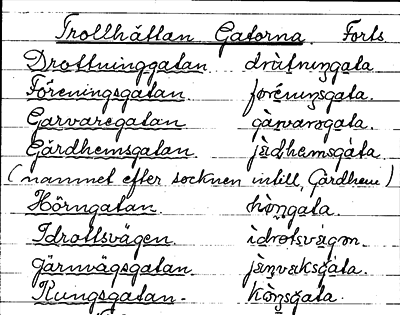 Trollhättan Gatorna. Forts.
Drottninggatan dràtniŋgata
Föreningsgatan fǫreniŋsgata.
Garvaregatan gàrvarəgata.
Gärdhemsgatan jàdhemsgàta.
(namnet efter socknen intill, Gärdhem)
Hörngatan hòṇgata.
Idrottsvägen ìdrotsvägən.
Järnvägsgatan jàṇvaksgáta.
Kungsgatan kòŋsgata.